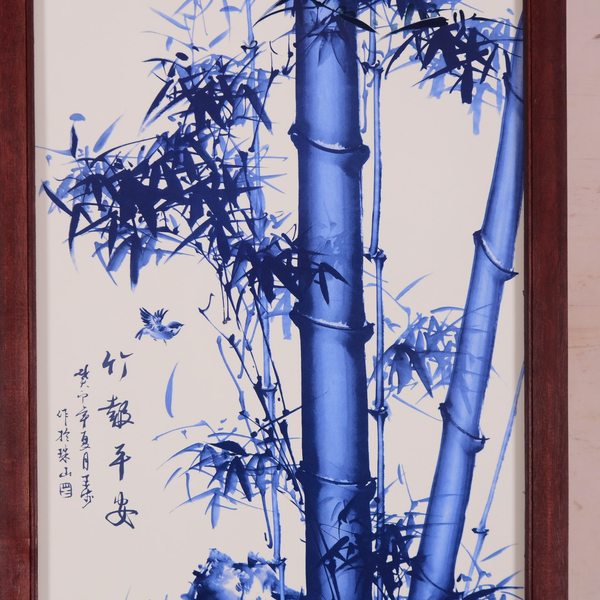 竹報平安
癸卯年夏月王步
作於珠山